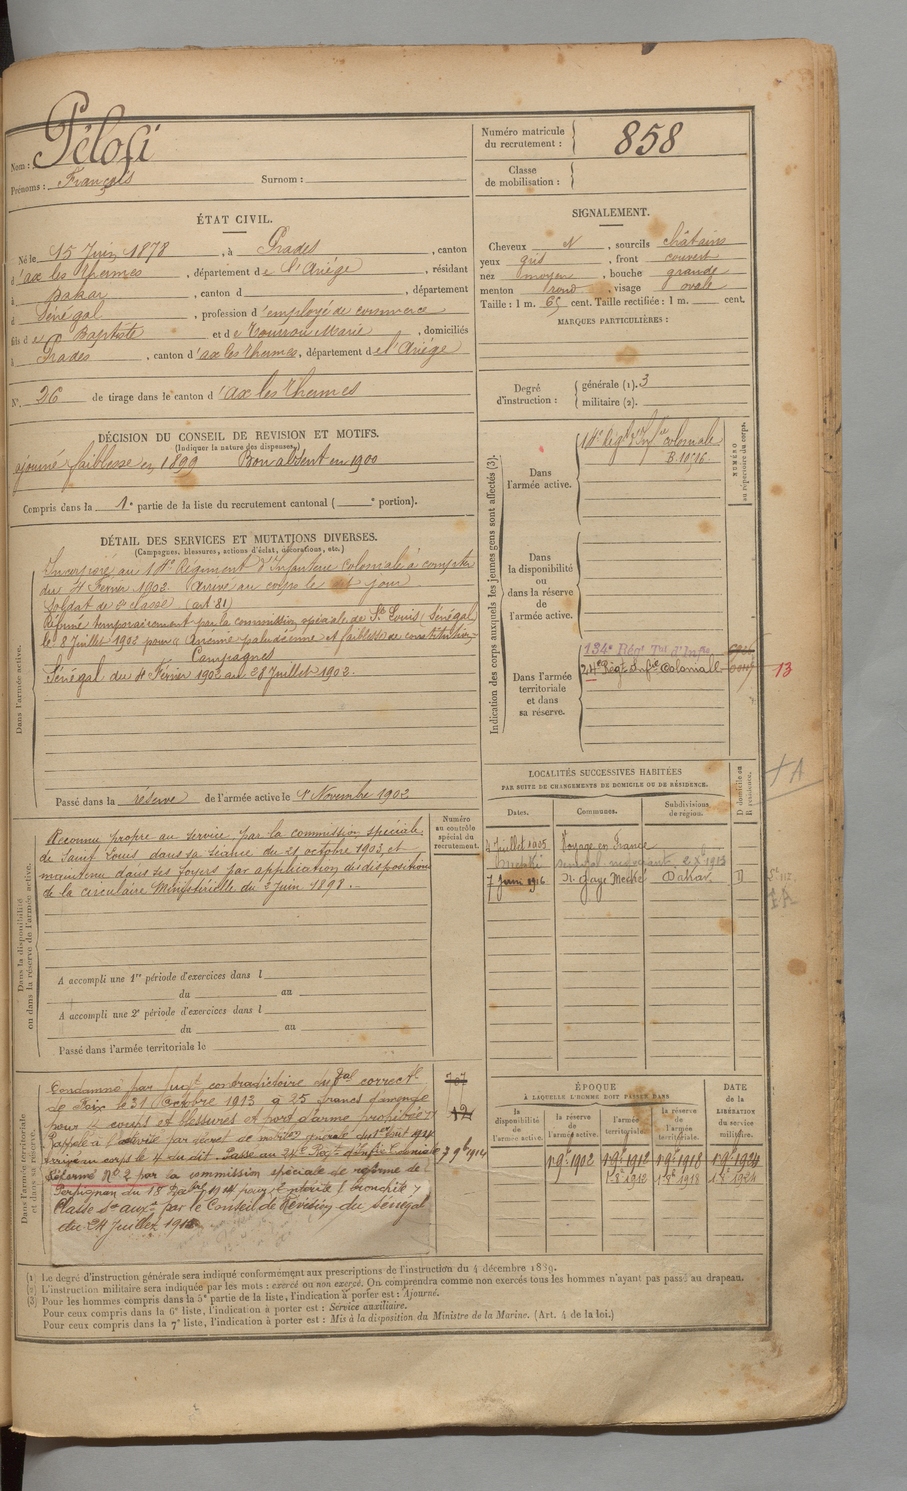 Nom : Pélofi
Prénoms : François Surnom :
Numéro matricule
du recrutement : 858
Classe
de mobilisation :
ÉTAT CIVIL.
Né le 15 Juin 1878, à Prades, canton
d'ax les thermes, département de l'Ariége, résidant
à Dakar, canton d , département
d Sénégal, profession d'employé de commerce
fils de Baptiste et de Marie, domiciliés
à Prades, canton d'ax les thermes, département de l'Ariége
N° 26 de tirage dans le canton d'ax les thermes
SIGNALEMENT.
Cheveux N, sourcils châtains
yeux gris, front couvert
nez moyen, bouche grande
menton rond, visage ovale
Taille : 1 m. 65 cent. Taille rectifiée : 1 m. cent.
MARQUES PARTICULIÈRES :
Degré
d'instruction :
générale (1). 3
militaire (2).
DÉCISION DU CONSEIL DE REVISION ET MOTIFS.
(Indiquer la nature des dispenses.)
ajourné faiblesse en 1899 Bon absent en 1900
Compris dans la 1e partie de la liste du recrutement cantonal ( e portion).
DÉTAIL DES SERVICES ET MUTATIONS DIVERSES.
(Campagnes, blessures, actions d'éclat, décorations, etc.)
Dans l'armée active.
Incorporé au Régiment d'Infanterie Coloniale à compter
du 4 Février 1902. Arrivé au corps le dit jour
Soldat de 2e classe (art 81)
Réformé temporairement par la commission spéciale de St Louis (Sénégal)
le 8 Juillet 1902 pour "Anémie paludéenne et faiblesse de constitution"
Campagnes
Sénégal du 4 Février 1902 au 28 Juillet 1902.
Passé dans la réserve de l'armée active le 1 Novembre 1902
Indication des corps auxquels les jeunes gens sont affectés (3).
NUMÉRO
au répertoire du corps.
Dans
l'armée active.
Régt d'Infie coloniale
Dans
la disponibilité
ou
dans la réserve
de
l'armée active.
Dans l'armée
territoriale
et dans
sa réserve.
134e Régt Tal d'Infie
24e Régt Infie Coloniale
13
LOCALITÉS SUCCESSIVES HABITÉES
PAR SUITE DE CHANGEMENTS DE DOMICILE OU DE RÉSIDENCE.
Dates. Communes. Subdivisions
de région.
D domicile ou
R résidence.
Juillet 1905 Voyage en France
7 Juin 1916 Dakar D
Dans la disponibilité
ou dans la réserve de l'armée active.
Numéro
au contrôle
spécial du
recrutement.
Reconnu propre au service par la commission spéciale
de Saint Louis dans sa séance du 21 octobre 1903 et
maintenu dans ses foyers par application des dispositions
de la circulaire Ministérielle du 3 Juin 1898.
A accompli une 1re période d'exercices dans l
du au
A accompli une 2e période d'exercices dans l
du au
Passé dans l'armée territoriale le
Dans l'armée territoriale
et dans sa réserve.
Condamné par jugt contradictoire du tal correctl
de Foix le 31 Octobre 1913 à 25 francs d'amende
pour coups et blessures et port d'arme prohibée
Rappelé à l'activité par décret de mobon générale du 1er Août 1914
arrivé au corps le 4 du dit. Passé au 24e Régt d'Infie Coloniale
Réformé N° 2 par la commission spéciale de réforme de
Perpignan du 18 1914 pour entérite, bronchite
Classé sce auxre par le Conseil de Révision du Sénégal
du 24 Juillet
ÉPOQUE
À LAQUELLE L'HOMME DOIT PASSER DANS
la
disponibilité
de
l'armée active.
la réserve
de
l'armée active.
l'armée
territoriale.
la réserve
de
l'armée
territoriale.
DATE
de la
LIBÉRATION
du service
militaire.
1 9e 1902 1 9e 1912 1 9e 1918 1 9e 1924
(1) Le degré d'instruction générale sera indiqué conformément aux prescriptions de l'instruction du 4 décembre 1889.
(2) L'instruction militaire sera indiquée par les mots : exercé ou non exercé. On comprendra comme non exercés tous les hommes n'ayant pas passé au drapeau.
(3) Pour les hommes compris dans la 5e partie de la liste, l'indication à porter est : Ajourné.
Pour ceux compris dans la 6e liste, l'indication à porter est : Service auxiliaire.
Pour ceux compris dans la 7e liste, l'indication à porter est : Mis à la disposition du Ministre de la Marine. (Art. 4 de la loi.)